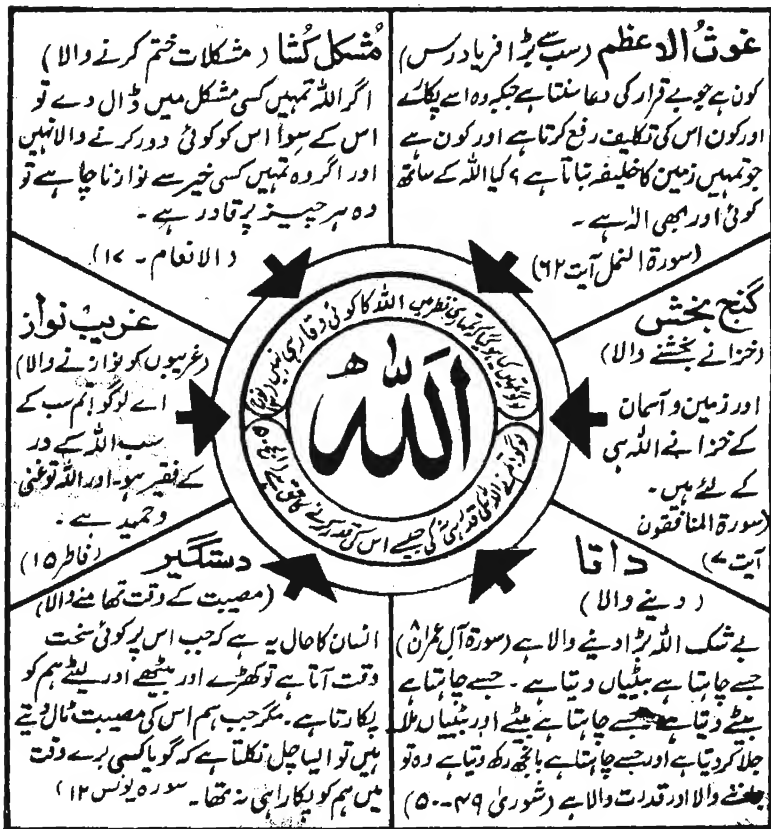 غوثُ الاعظم (سب سے بڑا فریادرس)
کون ہے جو بے قرار کی دعا سنتا ہے جبکہ وہ اسے پکارے
اور کون اس کی تکلیف رفع کرتا ہے اور کون ہے
جو تمہیں زمین کا خلیفہ بناتا ہے؟ کیا اللہ کے ساتھ
کوئی اور بھی الٰہ ہے۔
(سورۃ النمل آیت ۶۲)
مُشکل کُشا (مشکلات ختم کرنے والا)
اگر اللہ تمہیں کسی مشکل میں ڈال دے تو
اس کے سوا اس کو کوئی دور کرنے والا نہیں
اور اگر وہ تمہیں کسی خیر سے نوازنا چاہے تو
وہ ہر چیز پر قادر ہے۔
(الانعام۔ ۱۷)
گنج بخش
(خزانے بخشنے والا)
اور زمین و آسمان
کے خزانے اللہ ہی
کے لئے ہیں۔
(سورۃ المنافقون
آیت ۷)
غریب نواز
(غریبوں کو نوازنے والا)
اے لوگو! تم سب کے
سب اللہ کے در
کے فقیر ہو۔ اور اللہ تو غنی
و حمید ہے۔
(فاطر ۱۵)
اللّٰہ
تمہاری نظر میں اللہ کا کوئی وقار ہی نہیں
لوگو تم نے اللہ کی قدر ہی نہ کی جیسے اس کی قدر کرنے کا حق ہے
داتا
(دینے والا)
بے شک اللہ بڑا دینے والا ہے (سورۃ آل عمران ۸)
جسے چاہتا ہے بیٹیاں دیتا ہے۔ جسے چاہتا ہے
بیٹے دیتا ہے جسے چاہتا ہے بیٹے اور بیٹیاں ملا
جلا کر دیتا ہے اور جسے چاہتا ہے بانجھ رکھ دیتا ہے وہ تو
جاننے والا اور قدرت والا ہے (شوریٰ ۴۹۔۵۰)
دستگیر
(مصیبت کے وقت تھامنے والا)
انسان کا حال یہ ہے کہ جب اس پر کوئی سخت
وقت آتا ہے تو کھڑے اور بیٹھے اور لیٹے ہم کو
پکارتا ہے۔ مگر جب ہم اس کی مصیبت ٹال دیتے
ہیں تو ایسا چل نکلتا ہے کہ گویا کسی برے وقت
میں ہم کو پکارا ہی نہ تھا۔ سورہ یونس ۱۲)